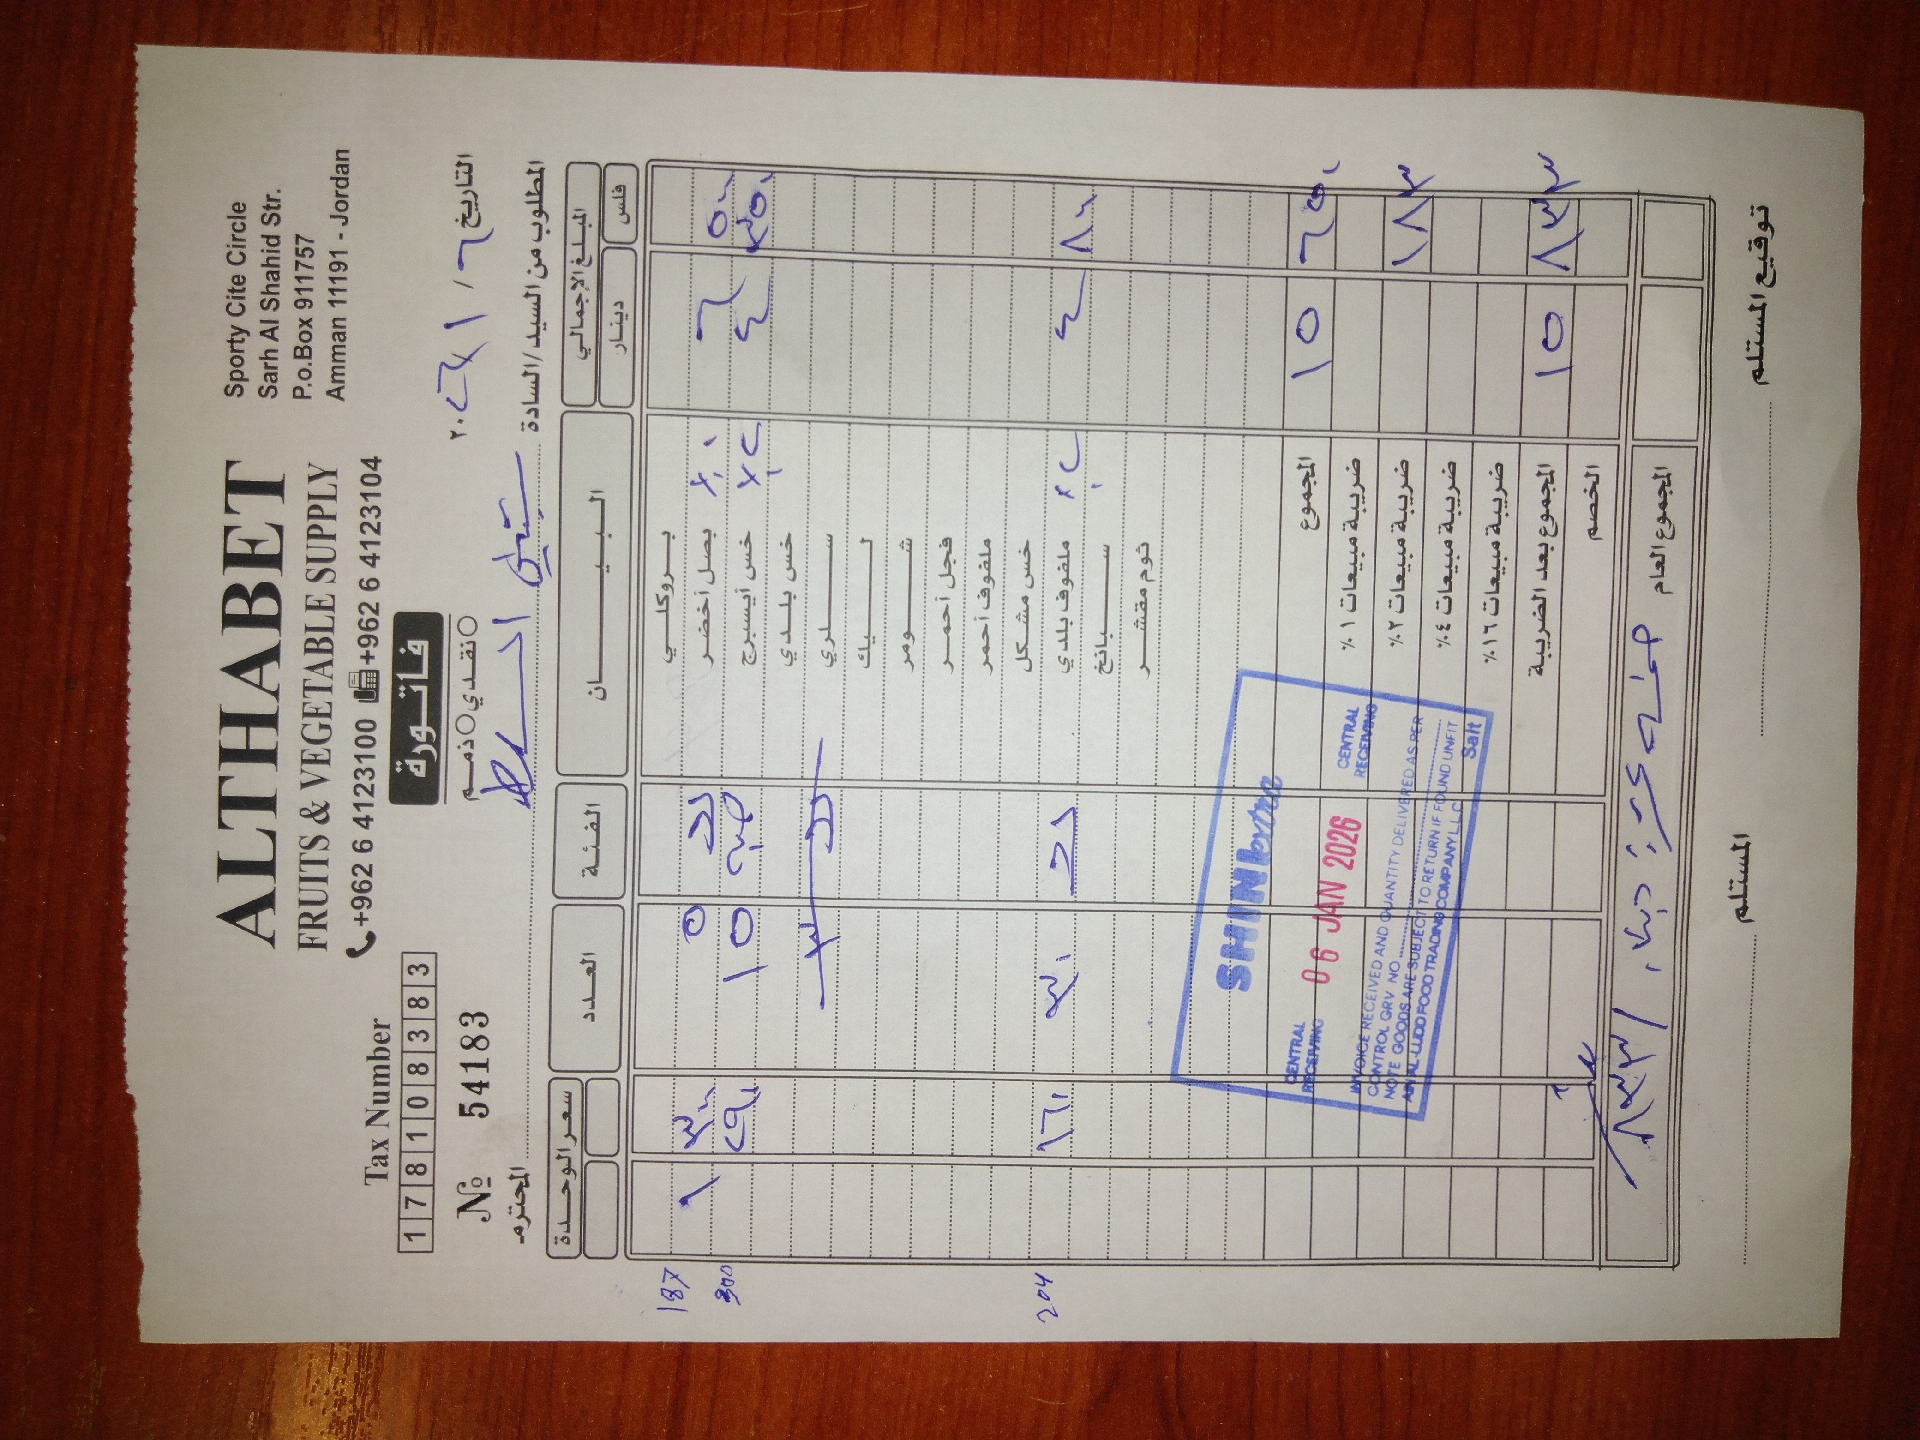 ALTHABET
FRUITS & VEGETABLE SUPPLY
+962 6 4123100 +962 6 4123104
Sporty Cite Circle
Sarh Al Shahid Str.
P.o.Box 911757
Amman 11191 - Jordan
Tax Number
178108383
فاتورة
نقدي ذمم
№ 54183
التاريخ ٦ / ١ /
المطلوب من السيد/السادة المحترم
المبلغ الإجمالي البيـــان الفئة العدد سعر الوحدة
فلس دينار
بروكلي
187 ١ ٣٠٠ ٥ بصل أخضر ٦ ٥٠٠
300 ٢٩٠ ١٥ خس أيسبرج ٤ ٣٥٠
خس بلدي
سلري
ليك
شومر
فجل أحمر
ملفوف أحمر
خس مشكل
204 ١٦٠ ٣٠ ملفوف بلدي ٤ ٨٠٠
سبانخ
ثوم مقشر
المجموع ١٥ ٦٥٠
ضريبة مبيعات ١%
ضريبة مبيعات ٢% ١٨٣
ضريبة مبيعات ٤%
ضريبة مبيعات ١٦%
المجموع بعد الضريبة ١٥ ٨٣٣
الخصم
المجموع العام
المستلم
توقيع المستلم
SHINI extra
CENTRAL RECEIVING 06 JAN 2026 CENTRAL RECEIVING
INVOICE RECEIVED AND QUANTITY DELIVERED AS PER
CONTROL GRV NO.
NOTE GOODS ARE SUBJECT TO RETURN IF FOUND UNFIT
AIN AL-LUDD FOOD TRADING COMPANY L.L.C
Salt